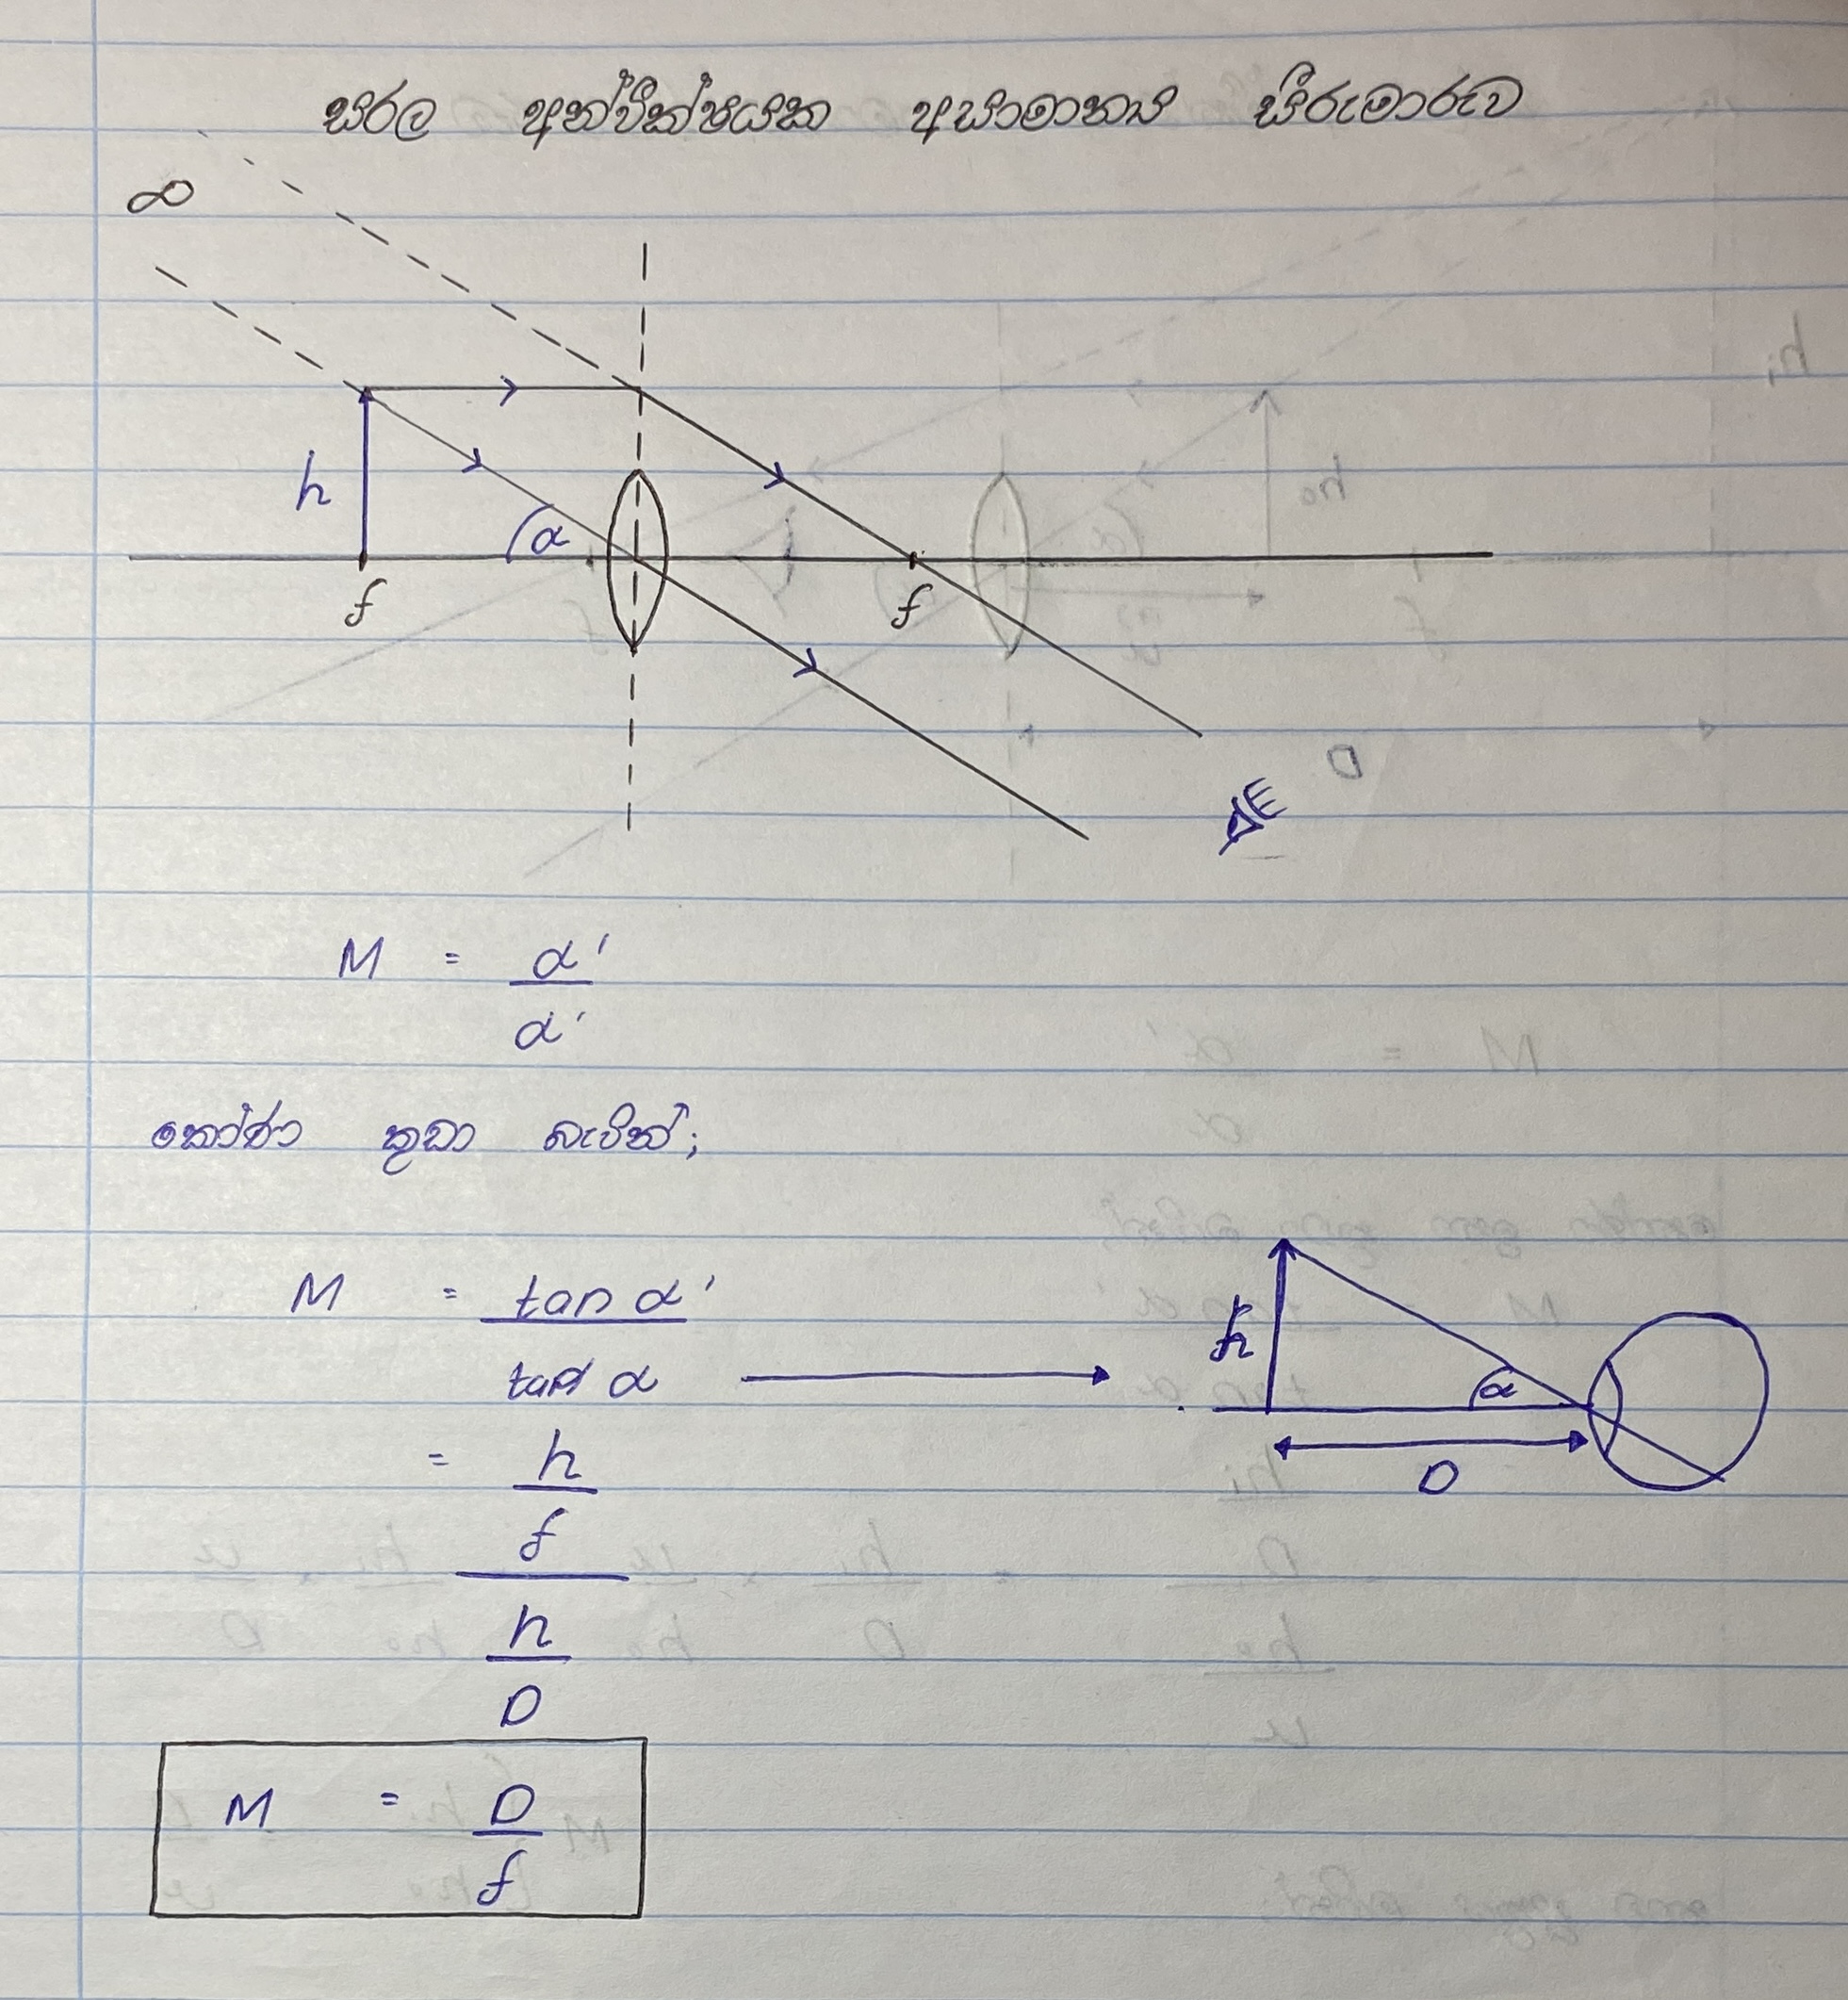 සරල අන්වීක්ෂයක අසාමාන්‍ය සීරුමාරුව
∞
h
α
f f
M = α'
α'
කෝණ කුඩා බැවින්;
M = tan α'
tan α
h
α
D
= h
f
h
D
M = D
f